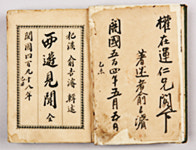 權在運仁兄閣下
著述者兪吉濬
開國五百四年五月五日
杞溪 兪吉濬 輯述
西遊見聞 全
開國四百九十八年